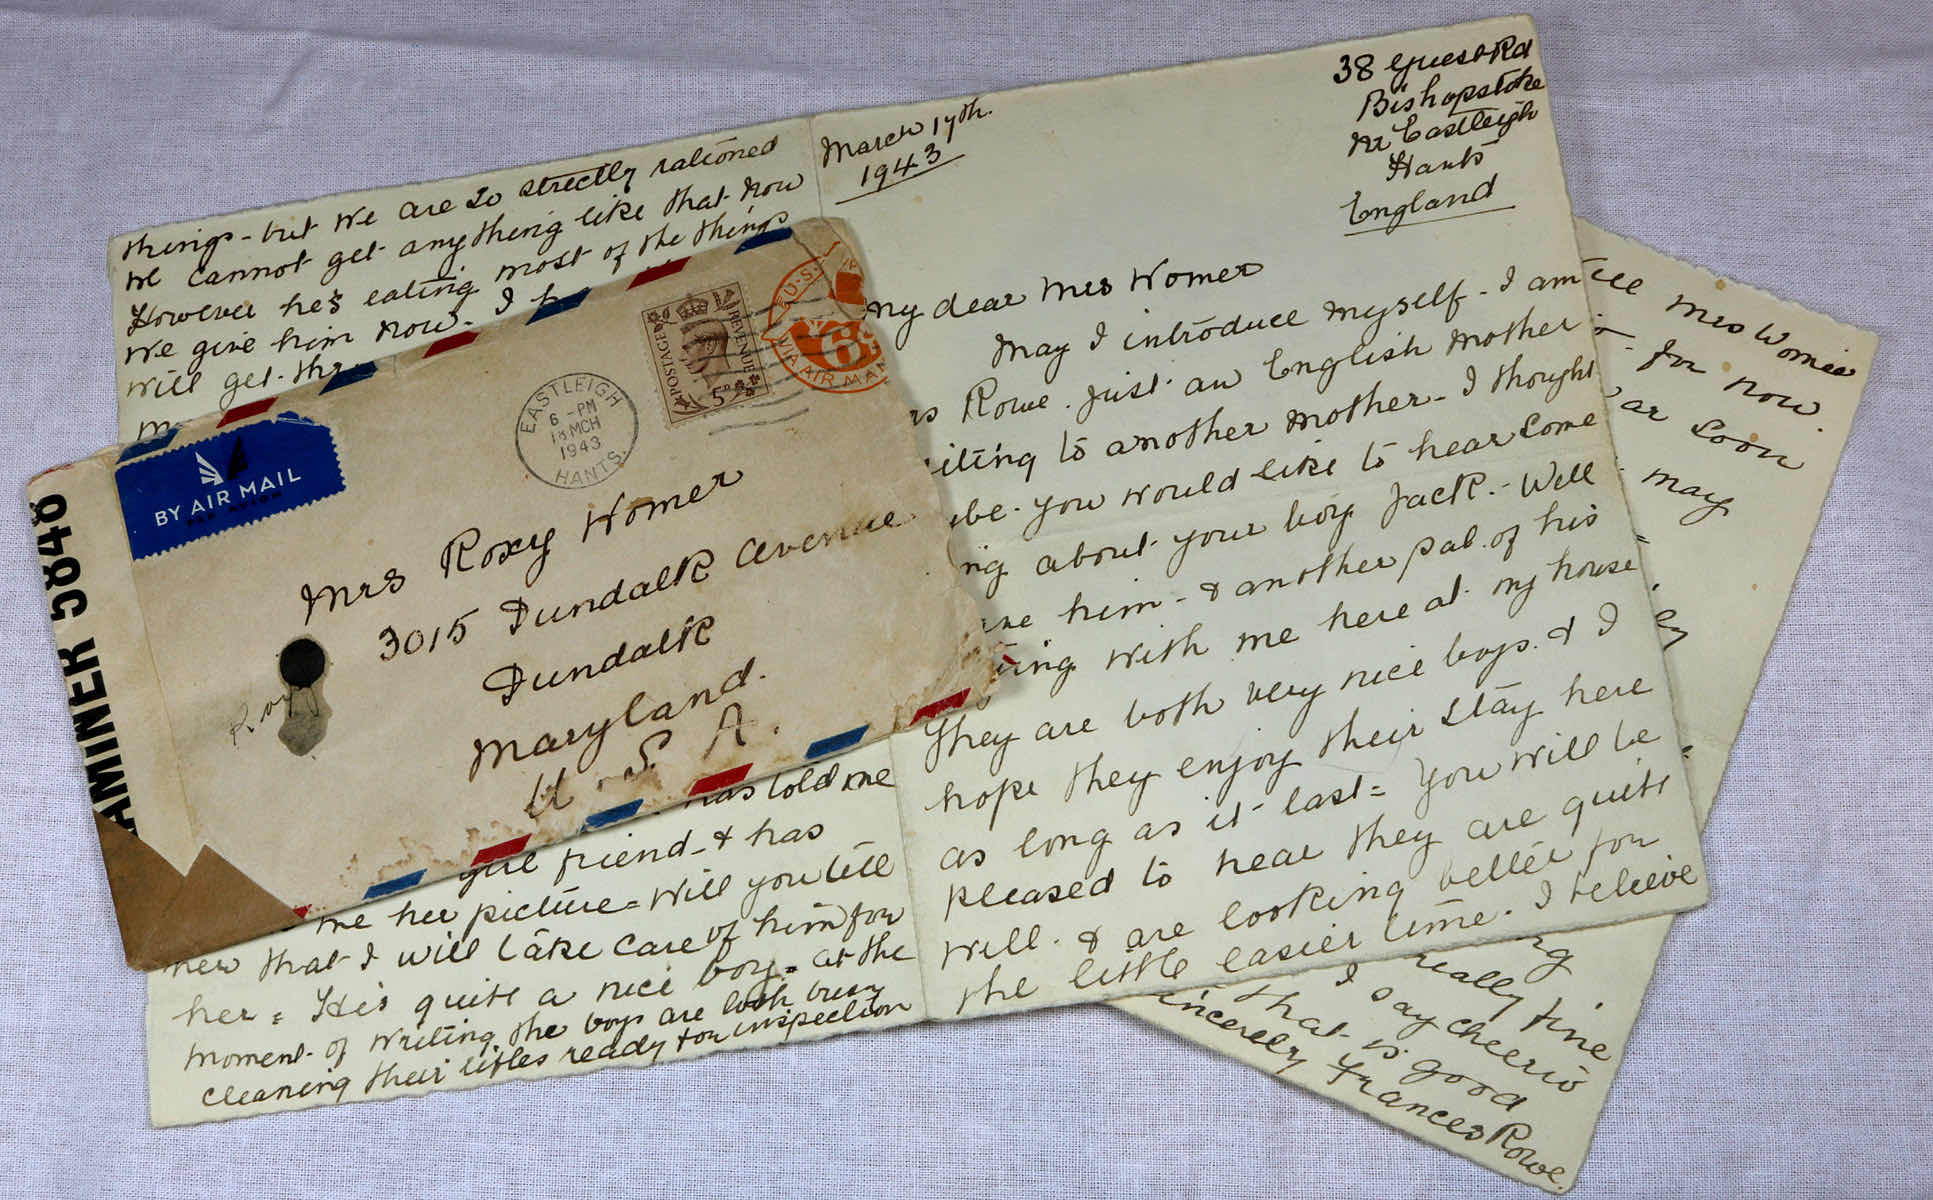 things - but we are so strictly rationed
we cannot get anything like that now
However he's eating most of the things
we give him now - I
will get
March 17th.
1943
38 Guest Rd
Bishopstoke
Nr Eastleigh
Hants
England
My dear Mrs Womer
May I introduce myself - I am
Rowe. Just an English Mother
to another mother - I thought
you would like to hear some
about your boy Jack. - Well
him - & another pal. of his
with me here at my house
They are both very nice boys. & I
hope they enjoy their stay here
as long as it last = You will be
pleased to hear they are quite
well. & are looking better for
the little easier time. I believe
EXAMINER 5848
BY AIR MAIL
PAR AVION
EASTLEIGH
6 - PM
18 MCH
1943
HANTS.
POSTAGE
REVENUE
5D
U.S.
6
VIA AIR MAIL
Mrs Roxy Homer
3015 Dundalk Avenue
Dundalk
Maryland.
U. S. A.
has told me
girl friend - & has
me her picture = Will you tell
her that I will take care of him for
her = He's quite a nice boy = at the
moment of writing the boys are both busy
cleaning their rifles ready for inspection
Mrs Womer
for now.
soon
may
really fine
I say cheerio
that is good
sincerely Frances Rowe.